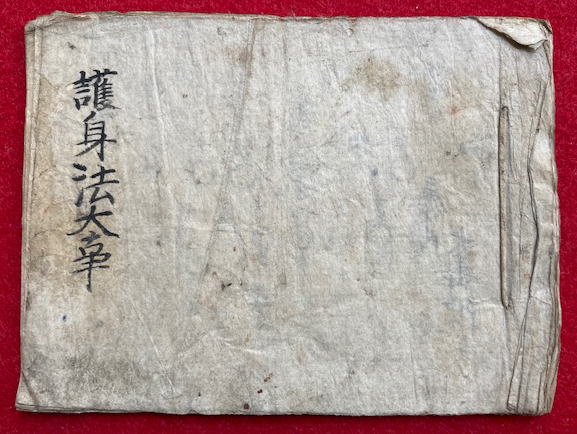 護身法大亊